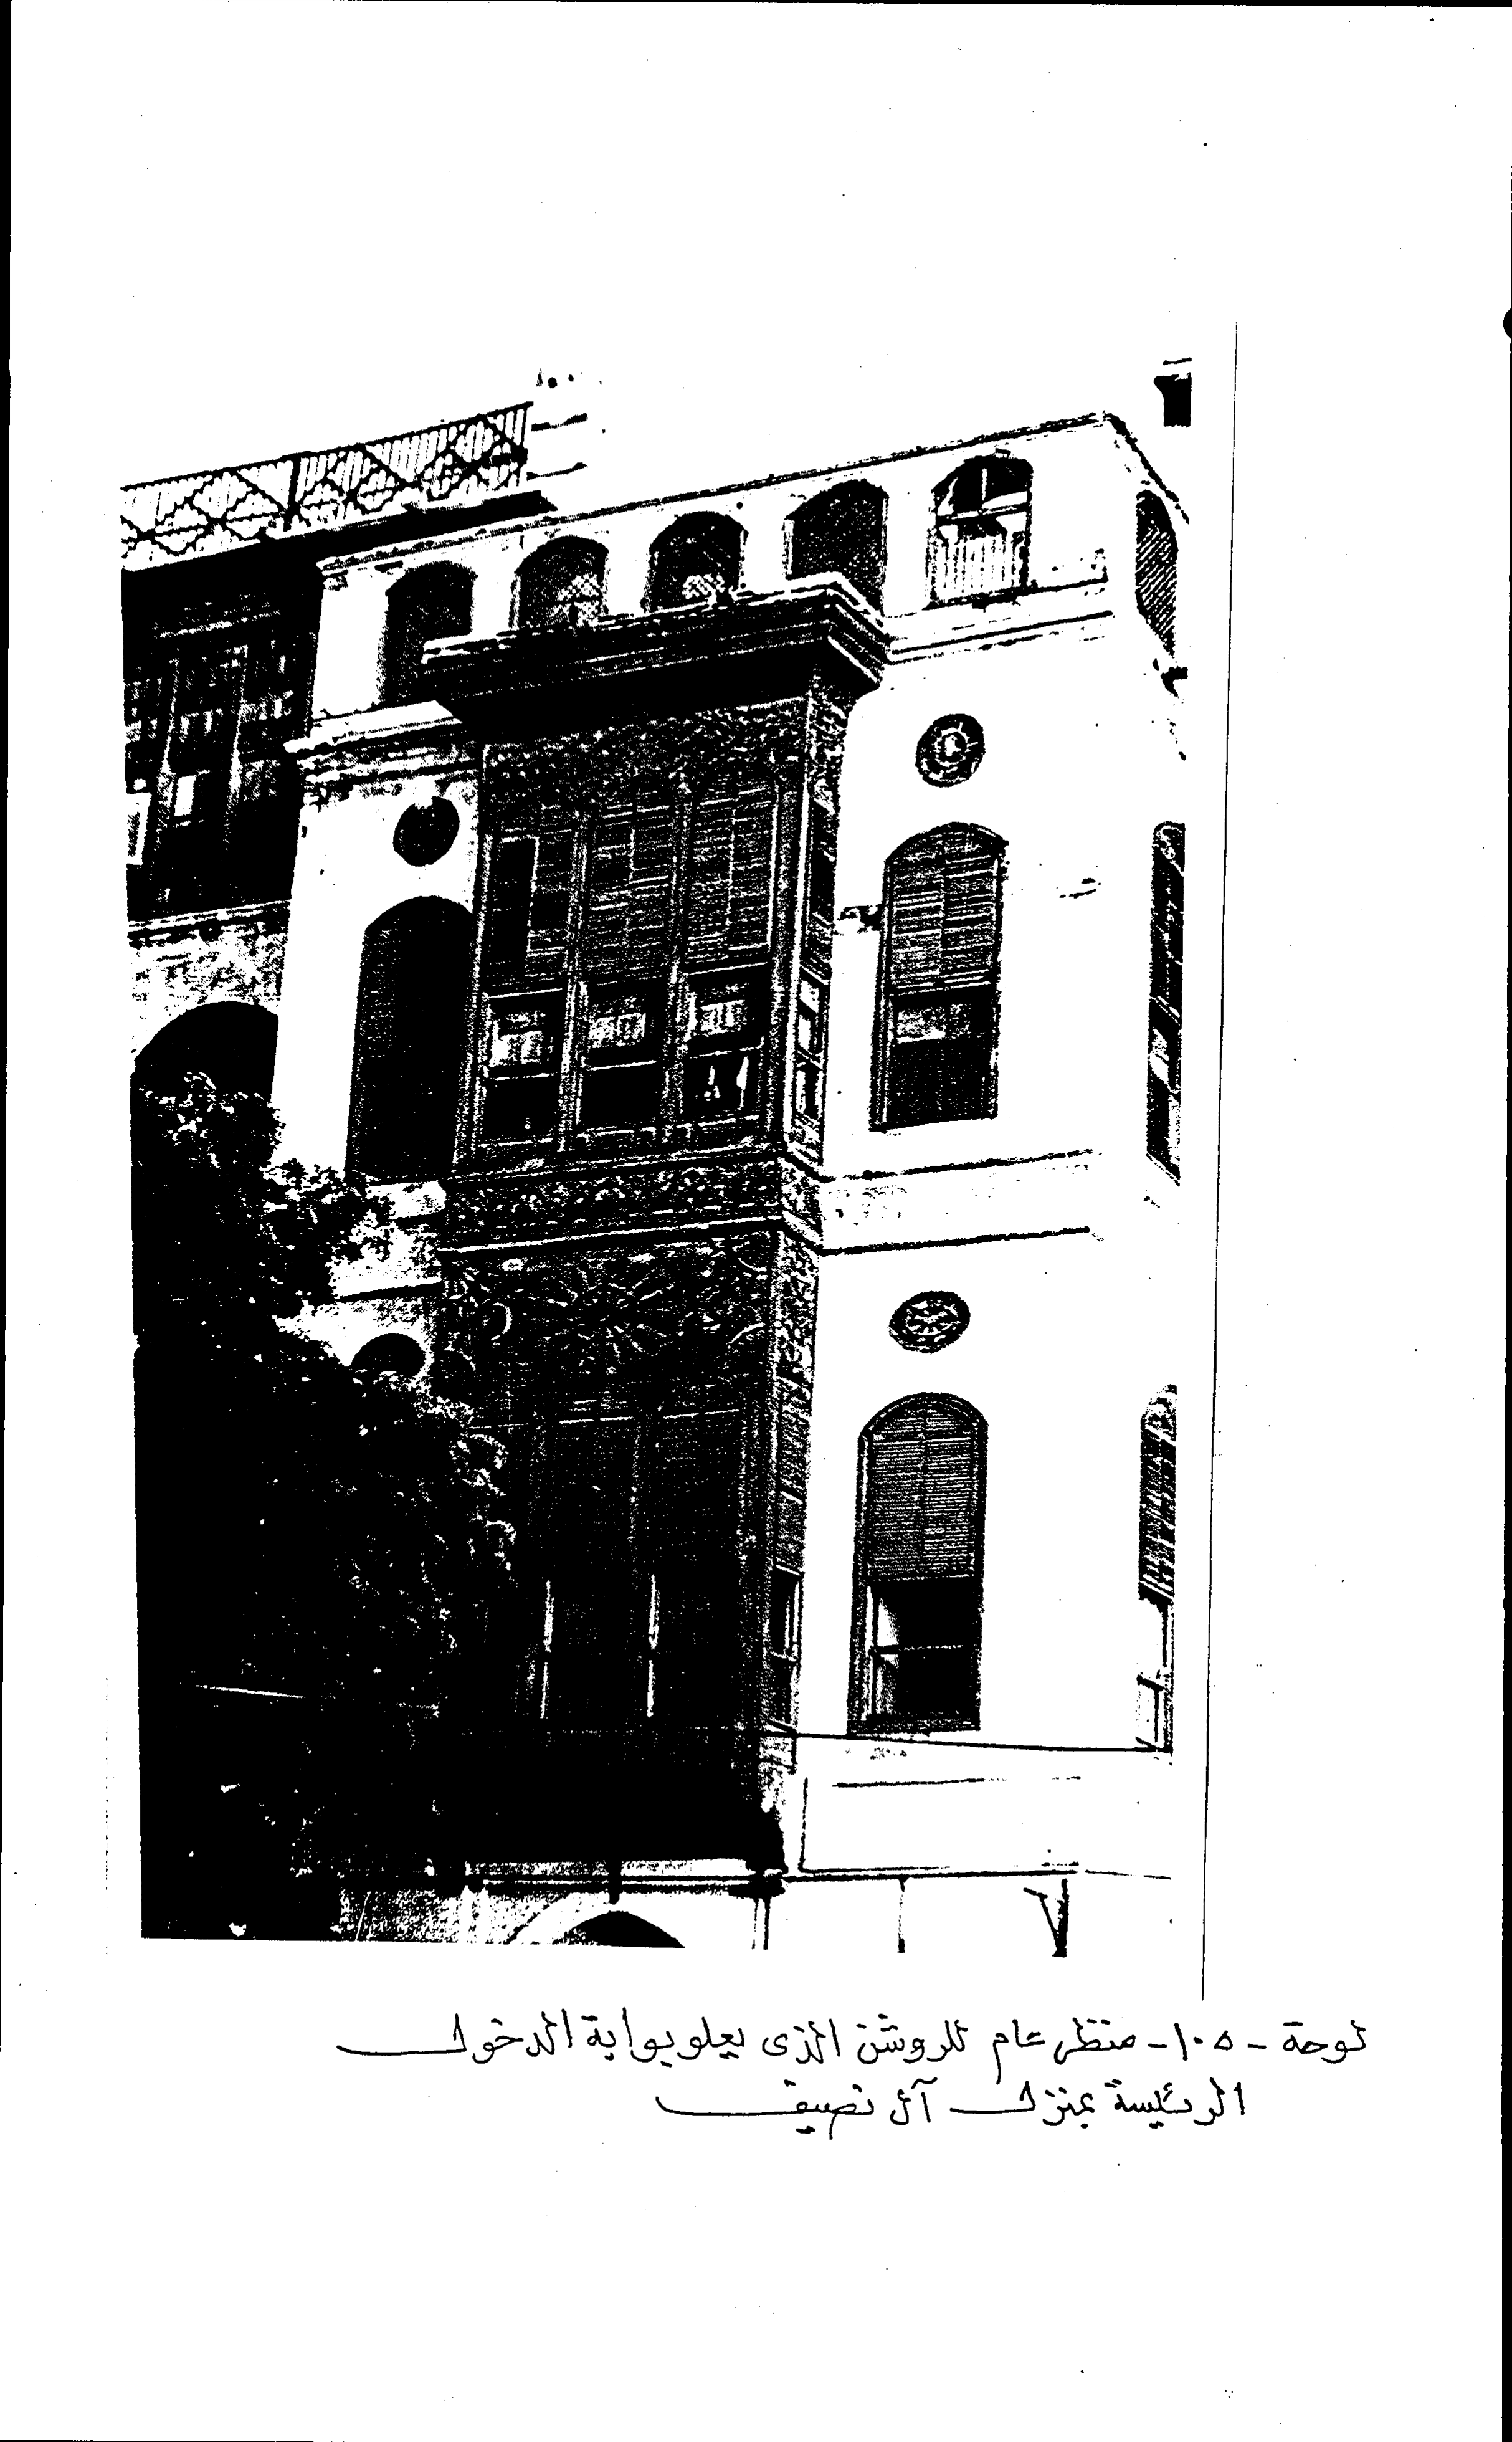 لوحة - ١٠٥ - منظر عام للروشن الذى يعلو بوابة الدخول
الرئيسة بمنزل آل نصيف